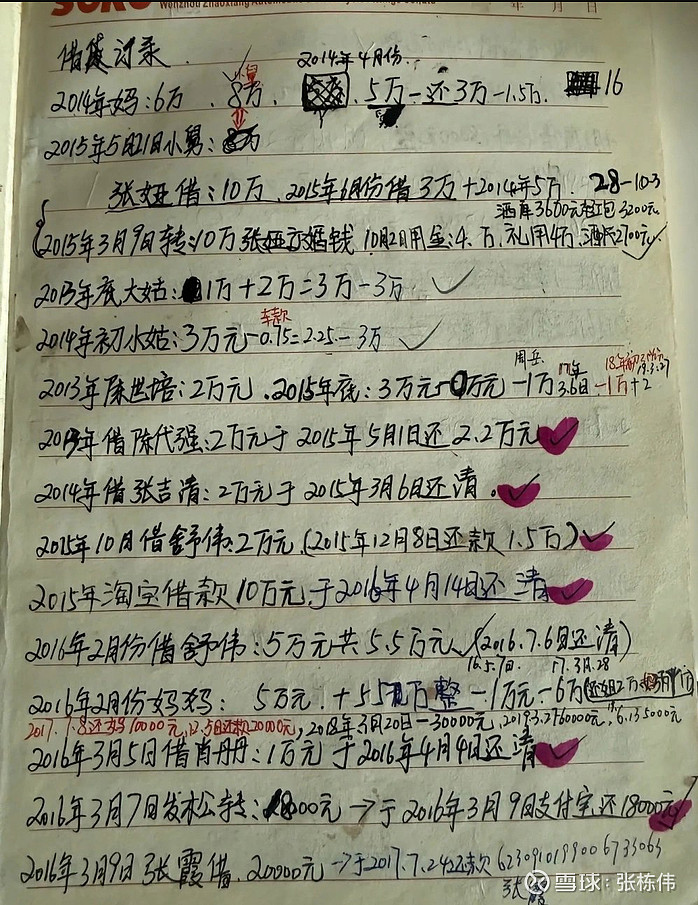 Wenzhou Zhaoxiang Automo
年 月 日
借 记录
2014年4月份
小舅
2014年妈:6万 8万 5万-还3万-1.5万 16
2015年5月21日小舅:8万
张娅借:10万 2015年6月份借3万+2014年5万 28-10-3
酒席3600元 红包3200元
2015年3月9日转:10万张娅 婚钱 10月2日用金:4万 礼用4万 2100元
2013年底大姑:1万+2万=3万-3万
车款
2014年初小姑:3万元-0.75=2.25-3万
周岳 17年 18年
2013年陈世培:2万元 2015年底:3万元 万元-1万 3.6日-1万+2
2013年借陈代强:2万元于2015年5月1日还2.2万元
2014年借张吉清:2万元于2015年3月6日还清.
2015年10月借舒伟:2万元(2015年12月8日还款1.5万)
2015年淘宝借款10万元于2016年4月14日还清
2016年2月份借舒伟:5万元共5.5万元(2016.7.6日还清)
16.5.9日. 17.3月.28
2016年2月份妈妈:5万元+5 万整-1万元-6万(还姐2万
2017.7.8还妈10000元, 5日还款20000元,2018年3月20日-30000元, 6.13 5000元
2016年3月5日借肖丹丹:1万元于2016年4月4日还清
2016年3月7日发松转:18000元→于2016年3月9日支付宝还18000元
2016年3月9日张霞借.20000元→于2017.7.24还款 6230910199006733063
张霞
雪球:张栋伟